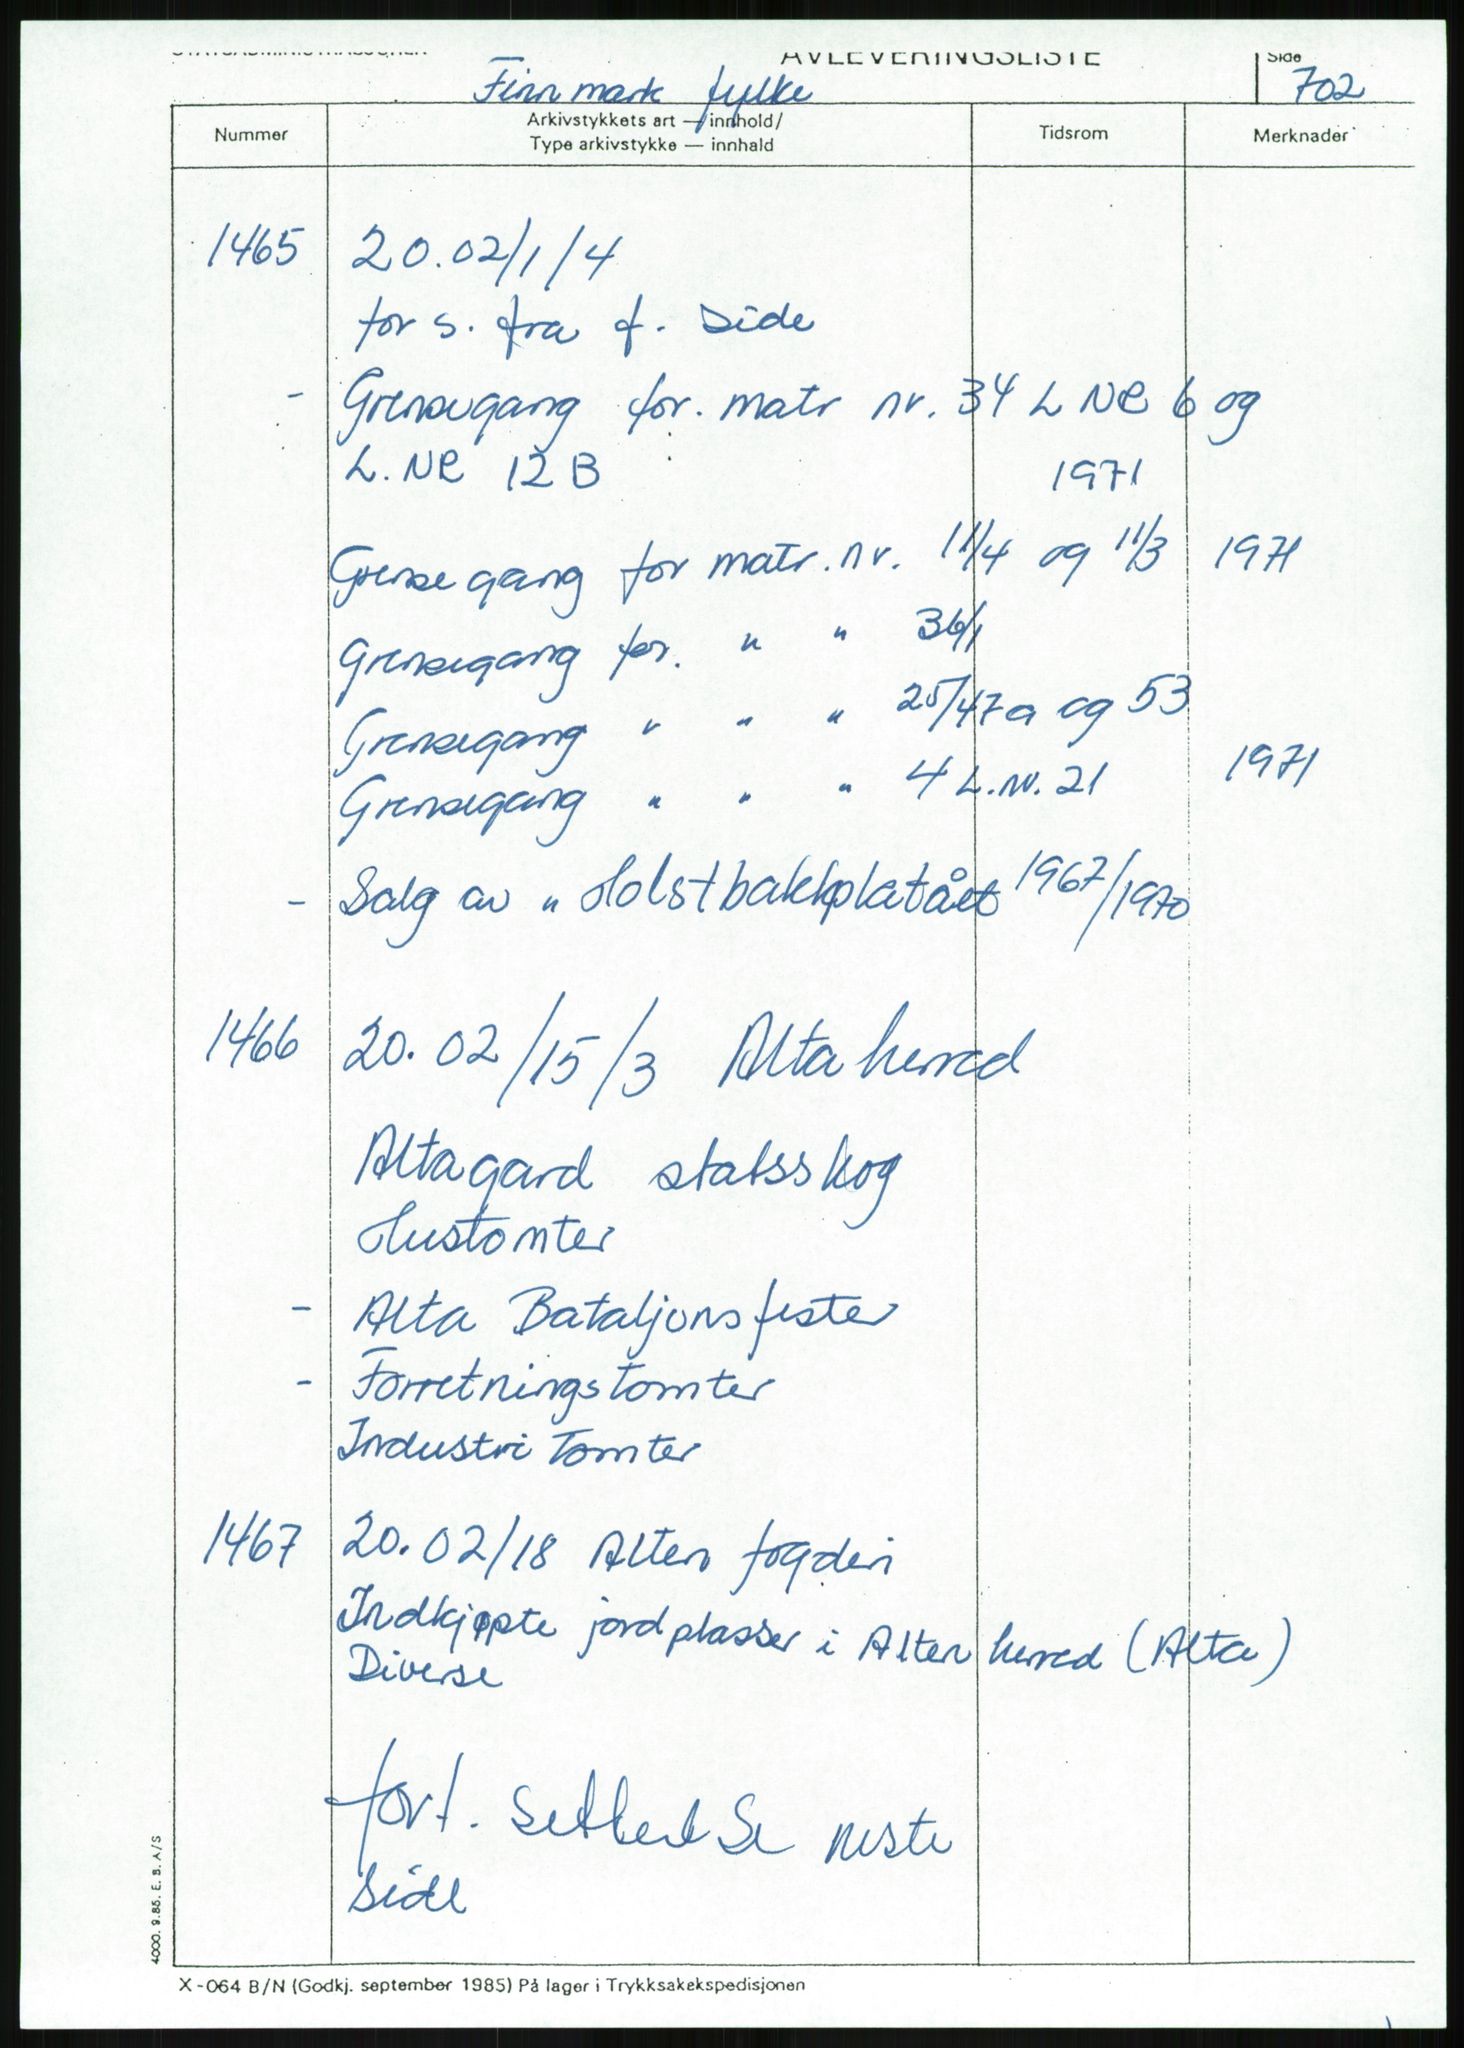 AVLEVERINGSLISTE
Side
Finnmark fylke
702
Nummer
Arkivstykkets art — innhold/
Type arkivstykke — innhald
Tidsrom
Merknader
1465 20.02/1/4
for s. fra f. side
- Grensegang for. matr nr. 34 L NR 6 og
L. NR 12 B 1971
Grensegang for matr. nr. 11/4 og 11/3 1971
Grensegang for. " " 36/1
Grensegang " " " 25/47a og 53
Grensegang " " " 4 L.nr. 21 1971
- Salg av " Holstbakkplatået 1967/1970
1466 20.02/15/3 Alta herred
Altagard statsskog
Hustomter
- Alta Bataljonsfester
- Forretningstomter
Industri tomter
1467 20.02/18 Alten fogderi
Indkjøpte jordplasser i Alten herred (Alta)
Diverse
fort. Se neste
side
4000. 9.85. E. B. A/S
X-064 B/N (Godkj. september 1985) På lager i Trykksakekspedisjonen